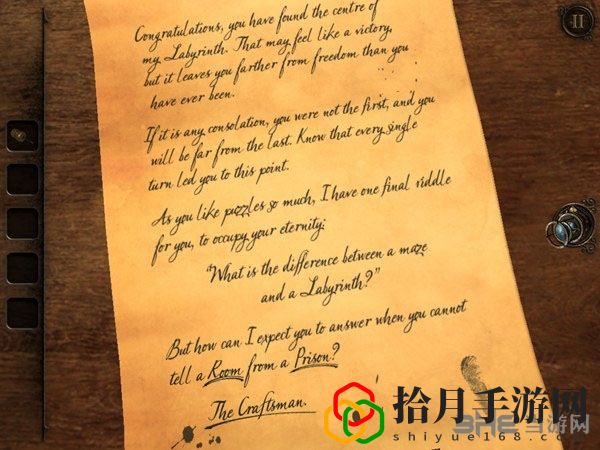 Congratulations, you have found the centre of
my Labyrinth. That may feel like a victory,
but it leaves you farther from freedom than you
have ever been.
If it is any consolation, you were not the first, and you
will be far from the last. Know that every single
turn led you to this point.
As you like puzzles so much, I have one final riddle
for you, to occupy your eternity:
"What is the difference between a maze
and a Labyrinth?"
But how can I expect you to answer when you cannot
tell a Room from a Prison?
The Craftsman.
拾月手游网
shiyue168.com